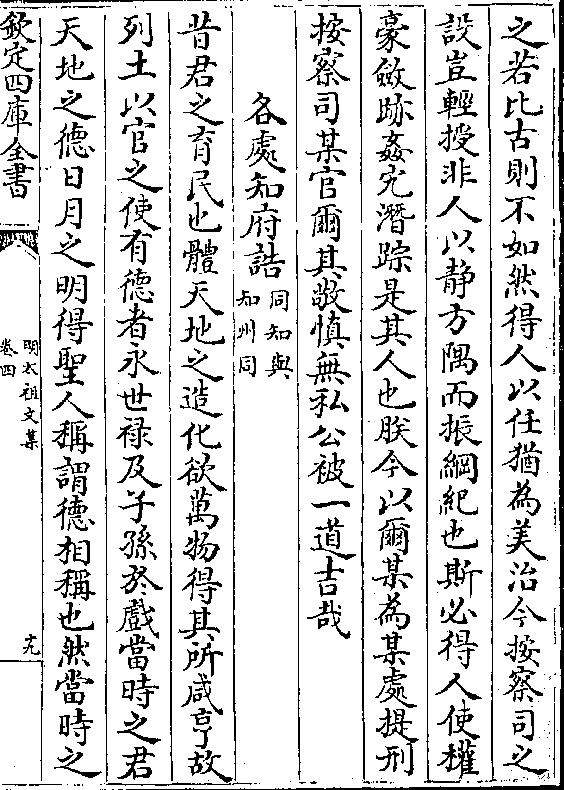 之若比古則不如然得人以任猶為美治今按察司之
設豈輕授非人以静方隅而振綱紀也斯必得人使權
豪斂跡姦宄潛踪是其人也朕今以爾某為某處提刑
按察司某官爾其敬慎無私公被一道吉哉
各處知府誥
同知與
知州同
昔君之育民也體天地之造化欲萬物得其所咸亨故
列土以官之使有德者永世禄及子孫於戲當時之君
天地之德日月之明得聖人稱謂德相稱也然當時之
欽定四庫全書
明太祖文集
卷四
十九